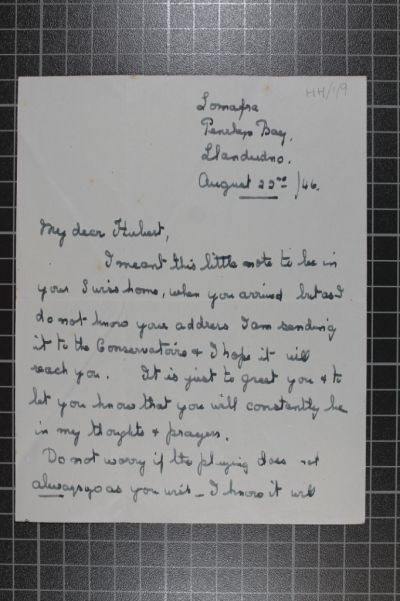 HH/1/9
Lomafra
Penrhyn Bay,
Llandudno.
August 22nd /46.
My dear Hubert,
I meant this little note to be in
your Swiss home, when you arrived but as I
do not know your address I am sending
it to the Conservatoire & I hope it will
reach you. It is just to greet you & to
let you know that you will constantly be
in my thoughts & prayers.
Do not worry if the playing does not
always go as you wish _ I know it will